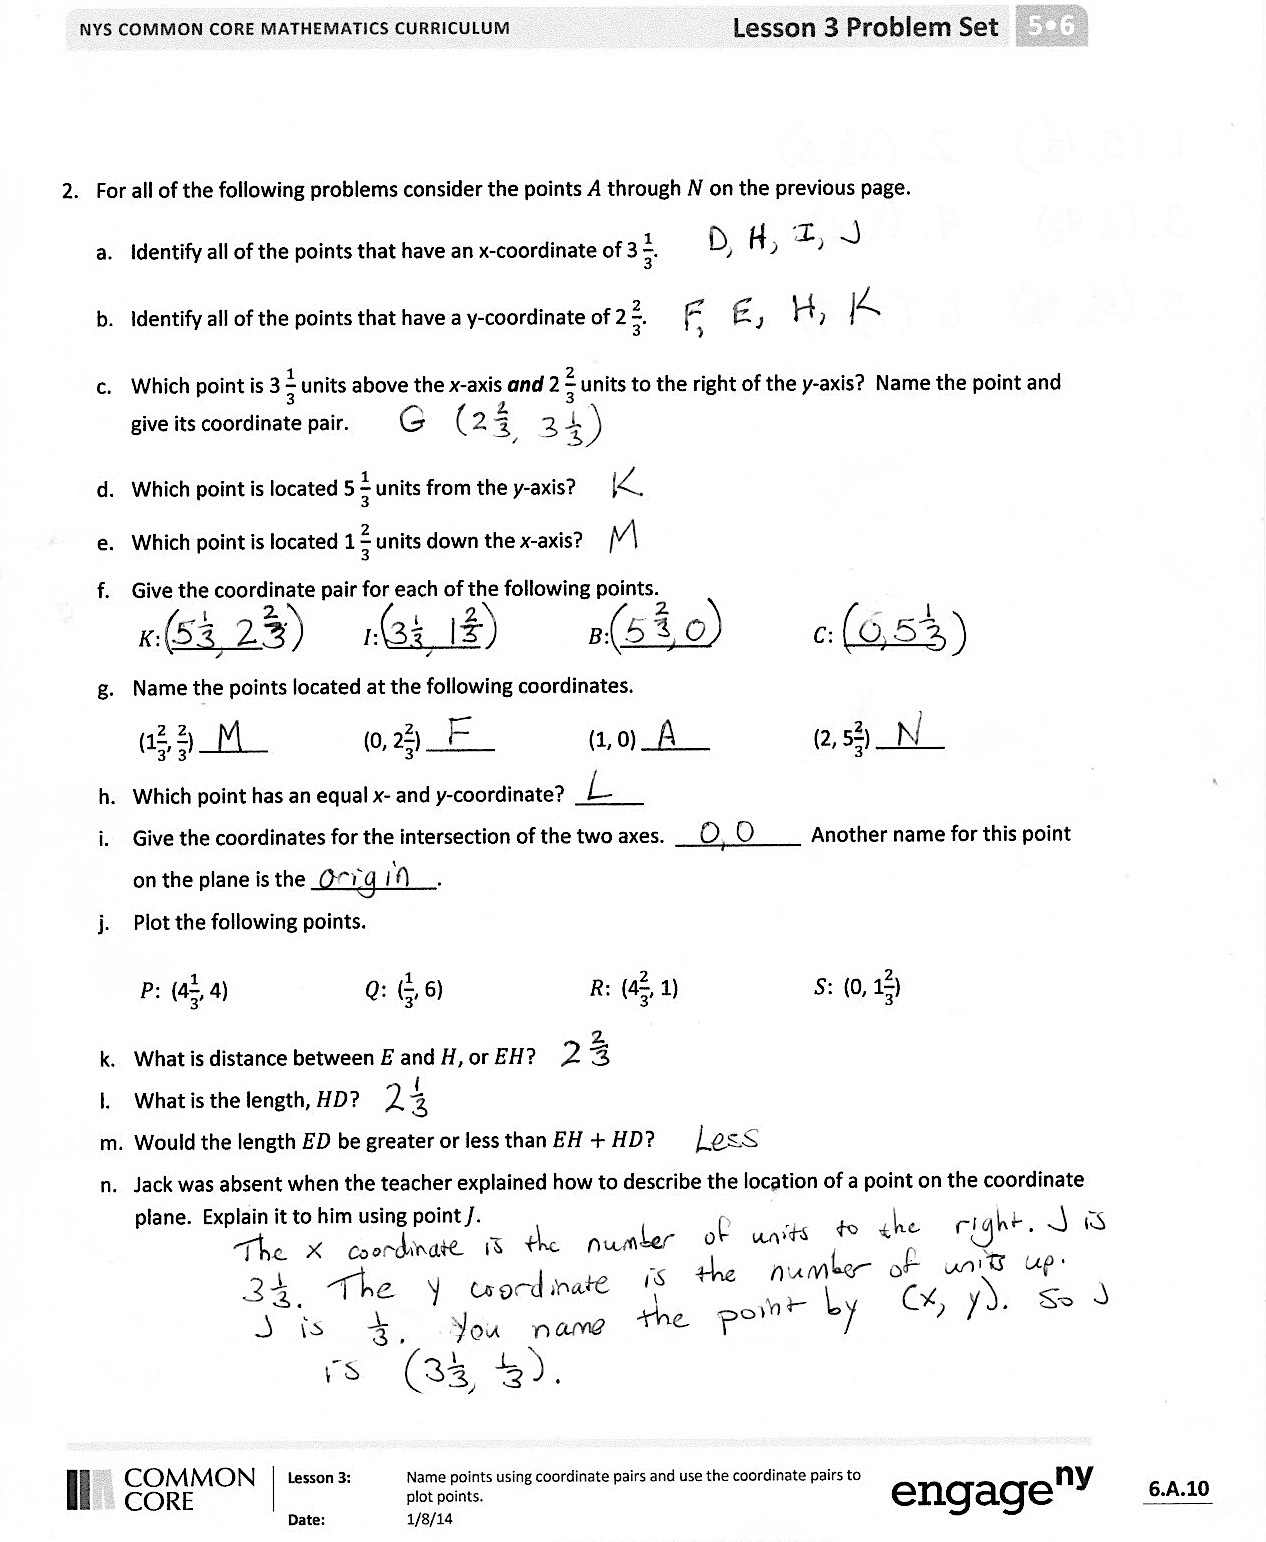 NYS COMMON CORE MATHEMATICS CURRICULUM Lesson 3 Problem Set 5•6
2. For all of the following problems consider the points A through N on the previous page.
a. Identify all of the points that have an x-coordinate of 3 1/3. D, H, I, J
b. Identify all of the points that have a y-coordinate of 2 2/3. F, E, H, K
c. Which point is 3 1/3 units above the x-axis and 2 2/3 units to the right of the y-axis? Name the point and
give its coordinate pair. G (2 2/3, 3 1/3)
d. Which point is located 5 1/3 units from the y-axis? K
e. Which point is located 1 2/3 units down the x-axis? M
f. Give the coordinate pair for each of the following points.
K: (5 1/3, 2 2/3) I: (3 1/3, 1 2/3) B: (5 2/3, 0) C: (0, 5 1/3)
g. Name the points located at the following coordinates.
(1 2/3, 2/3) M (0, 2 2/3) F (1, 0) A (2, 5 2/3) N
h. Which point has an equal x- and y-coordinate? L
i. Give the coordinates for the intersection of the two axes. 0, 0 Another name for this point
on the plane is the origin.
j. Plot the following points.
P: (4 1/3, 4) Q: (1/3, 6) R: (4 2/3, 1) S: (0, 1 2/3)
k. What is distance between E and H, or EH? 2 2/3
l. What is the length, HD? 2 1/3
m. Would the length ED be greater or less than EH + HD? Less
n. Jack was absent when the teacher explained how to describe the location of a point on the coordinate
plane. Explain it to him using point J.
The x coordinate is the number of units to the right. J is
3 1/3. The y coordinate is the number of units up.
J is 1/3. You name the point by (x, y). So J
is (3 1/3, 1/3).
COMMON CORE
Lesson 3: Name points using coordinate pairs and use the coordinate pairs to
plot points.
Date: 1/8/14
engageny
6.A.10